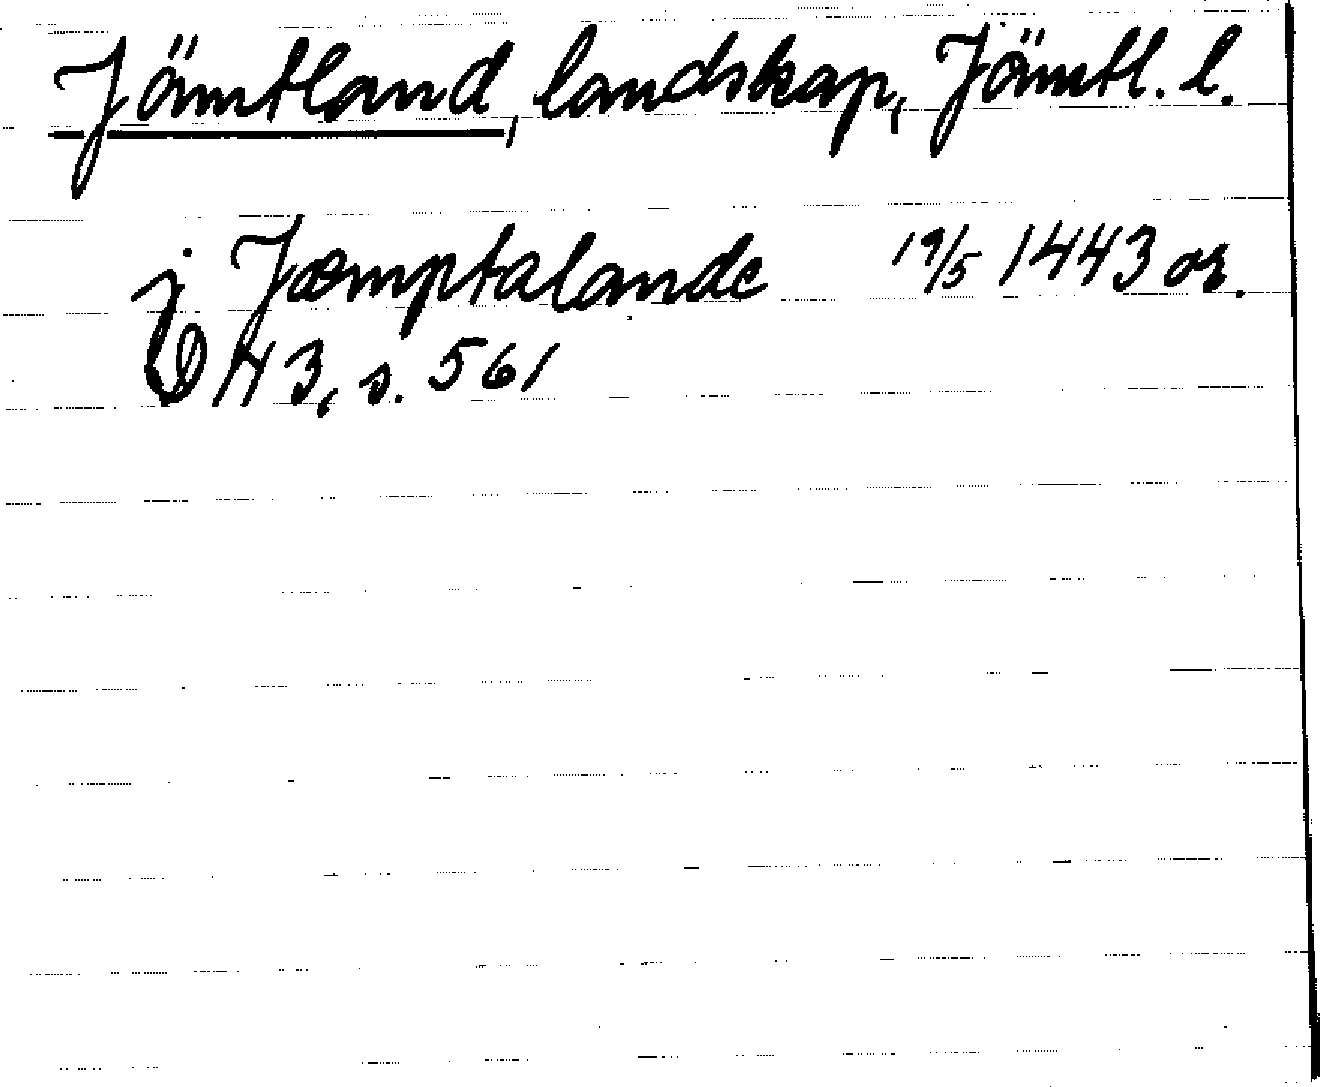 Jämtland, landskap, Jämtl. l.
j Jæmptalande 19/5 1443 or.
D 13, s. 561